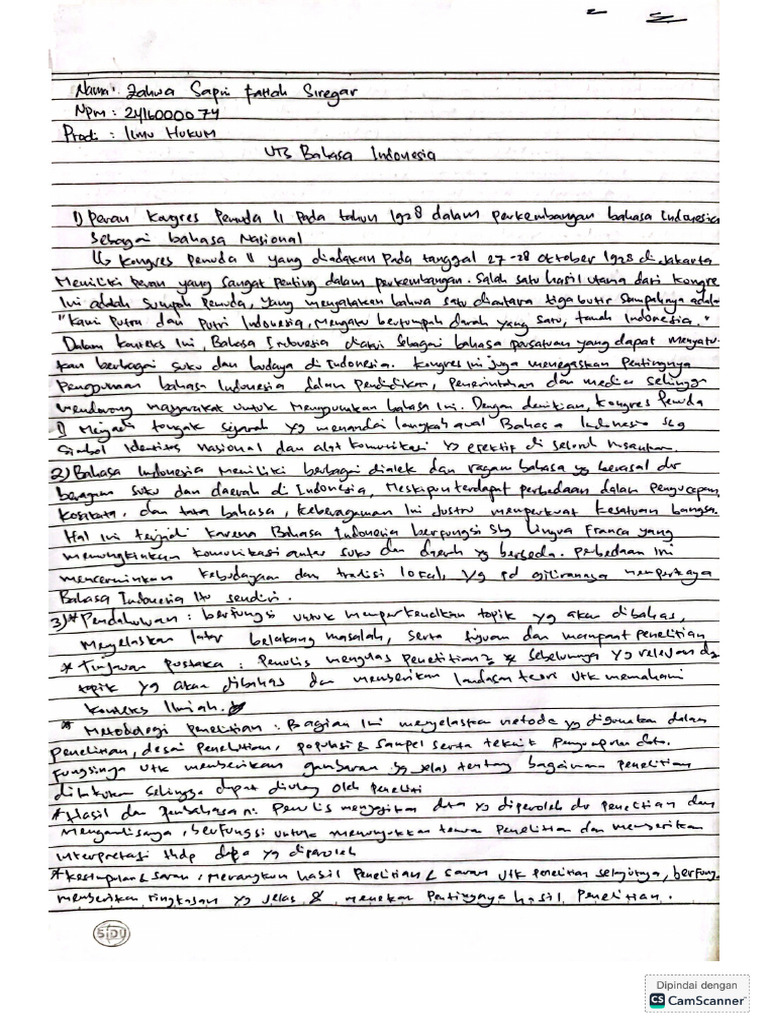 Nama : Zahwa Sapri Fattah Siregar
Npm : 2416000074
Prodi : Ilmu Hukum
UTS Bahasa Indonesia
1) Peran Kongres Pemuda II pada tahun 1928 dalam perkembangan bahasa Indonesia
sebagai bahasa Nasional
↳ Kongres pemuda II yang diadakan Pada tanggal 27-28 Oktober 1928 di Jakarta
Memiliki peran yang sangat penting dalam perkembangan. Salah satu hasil utama dari kongre
Ini adalah Sumpah Pemuda, yang menyatakan bahwa satu diantara tiga butir Sumpahnya adala
"Kami Putra dan Putri Indonesia, Mengaku bertumpah darah yang satu, tanah Indonesia."
Dalam konteks Ini, Bahasa Indonesia diakui Sebagai bahasa persatuan yang dapat menyatu
kan berbagai suku dan budaya di Indonesia. Kongres ini juga menegaskan Pentingnya
Penggunaan bahasa Indonesia dalam Pendidikan, Pemerintahan dan media sehingga
mendorong masyarakat untuk Menggunakan bahasa Ini. Dengan demikian, Kongres Pemuda
II Menjadi tonggak sejarah yg menandai langkah awal Bahasa Indonesia sbg
Simbol Identitas Nasional dan alat komunikasi yg efektif di seluruh nusantara.
2) Bahasa Indonesia Memiliki berbagai dialek dan ragam bahasa yg berasal dr
beragam suku dan daerah di Indonesia, Meskipun terdapat perbedaan dalam Pengucapan,
Kosakata, dan tata bahasa, Keberagaman Ini Justru memperkuat Kesatuan bangsa.
Hal Ini terjadi karena Bahasa Indonesia berfungsi Sbg Lingua Franca yang
memungkinkan komunikasi antar suku dan daerah yg berbeda. perbedaan ini
mencerminkan kebudayaan dan tradisi local, yg pd gilirannya memperkaya
Bahasa Indonesia Itu sendiri.
3) * Pendahuluan : berfungsi untuk memperkenalkan topik yg akan dibahas,
Menjelaskan latar belakang masalah, serta tujuan dan manfaat penelitian
* Tinjauan pustaka : Penulis mengulas Penelitian2 sebelumnya yg relevan dg
topik yg akan dibahas dan memberikan landasan teori utk memahami
Konteks Ilmiah.
* Metodologi penelitian : Bagian Ini menjelaskan metode yg digunakan dalam
Penelitian, desai Penelitian, populasi & Sampel serta teknik Pengumpulan data.
fungsinya utk memberikan gambaran yg jelas tentang bagaimana penelitian
dilakukan sehingga dapat diulang oleh Peneliti
* Hasil dan Pembahasan : Penulis menyajikan data yg diperoleh dr penelitian dan
Menganalisanya, berfungsi untuk menunjukkan temuan Penelitian dan memberikan
Interpretasi thdp yg diperoleh
* Kesimpulan & Saran : Merangkum hasil Penelitian & saran utk penelitian selanjutnya, berfung
memberikan ringkasan yg jelas & menekan Pentingnya hasil Penelitian.
SiDU
Dipindai dengan
CS CamScanner